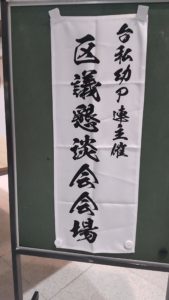 台私幼P連主催
区議懇談会会場